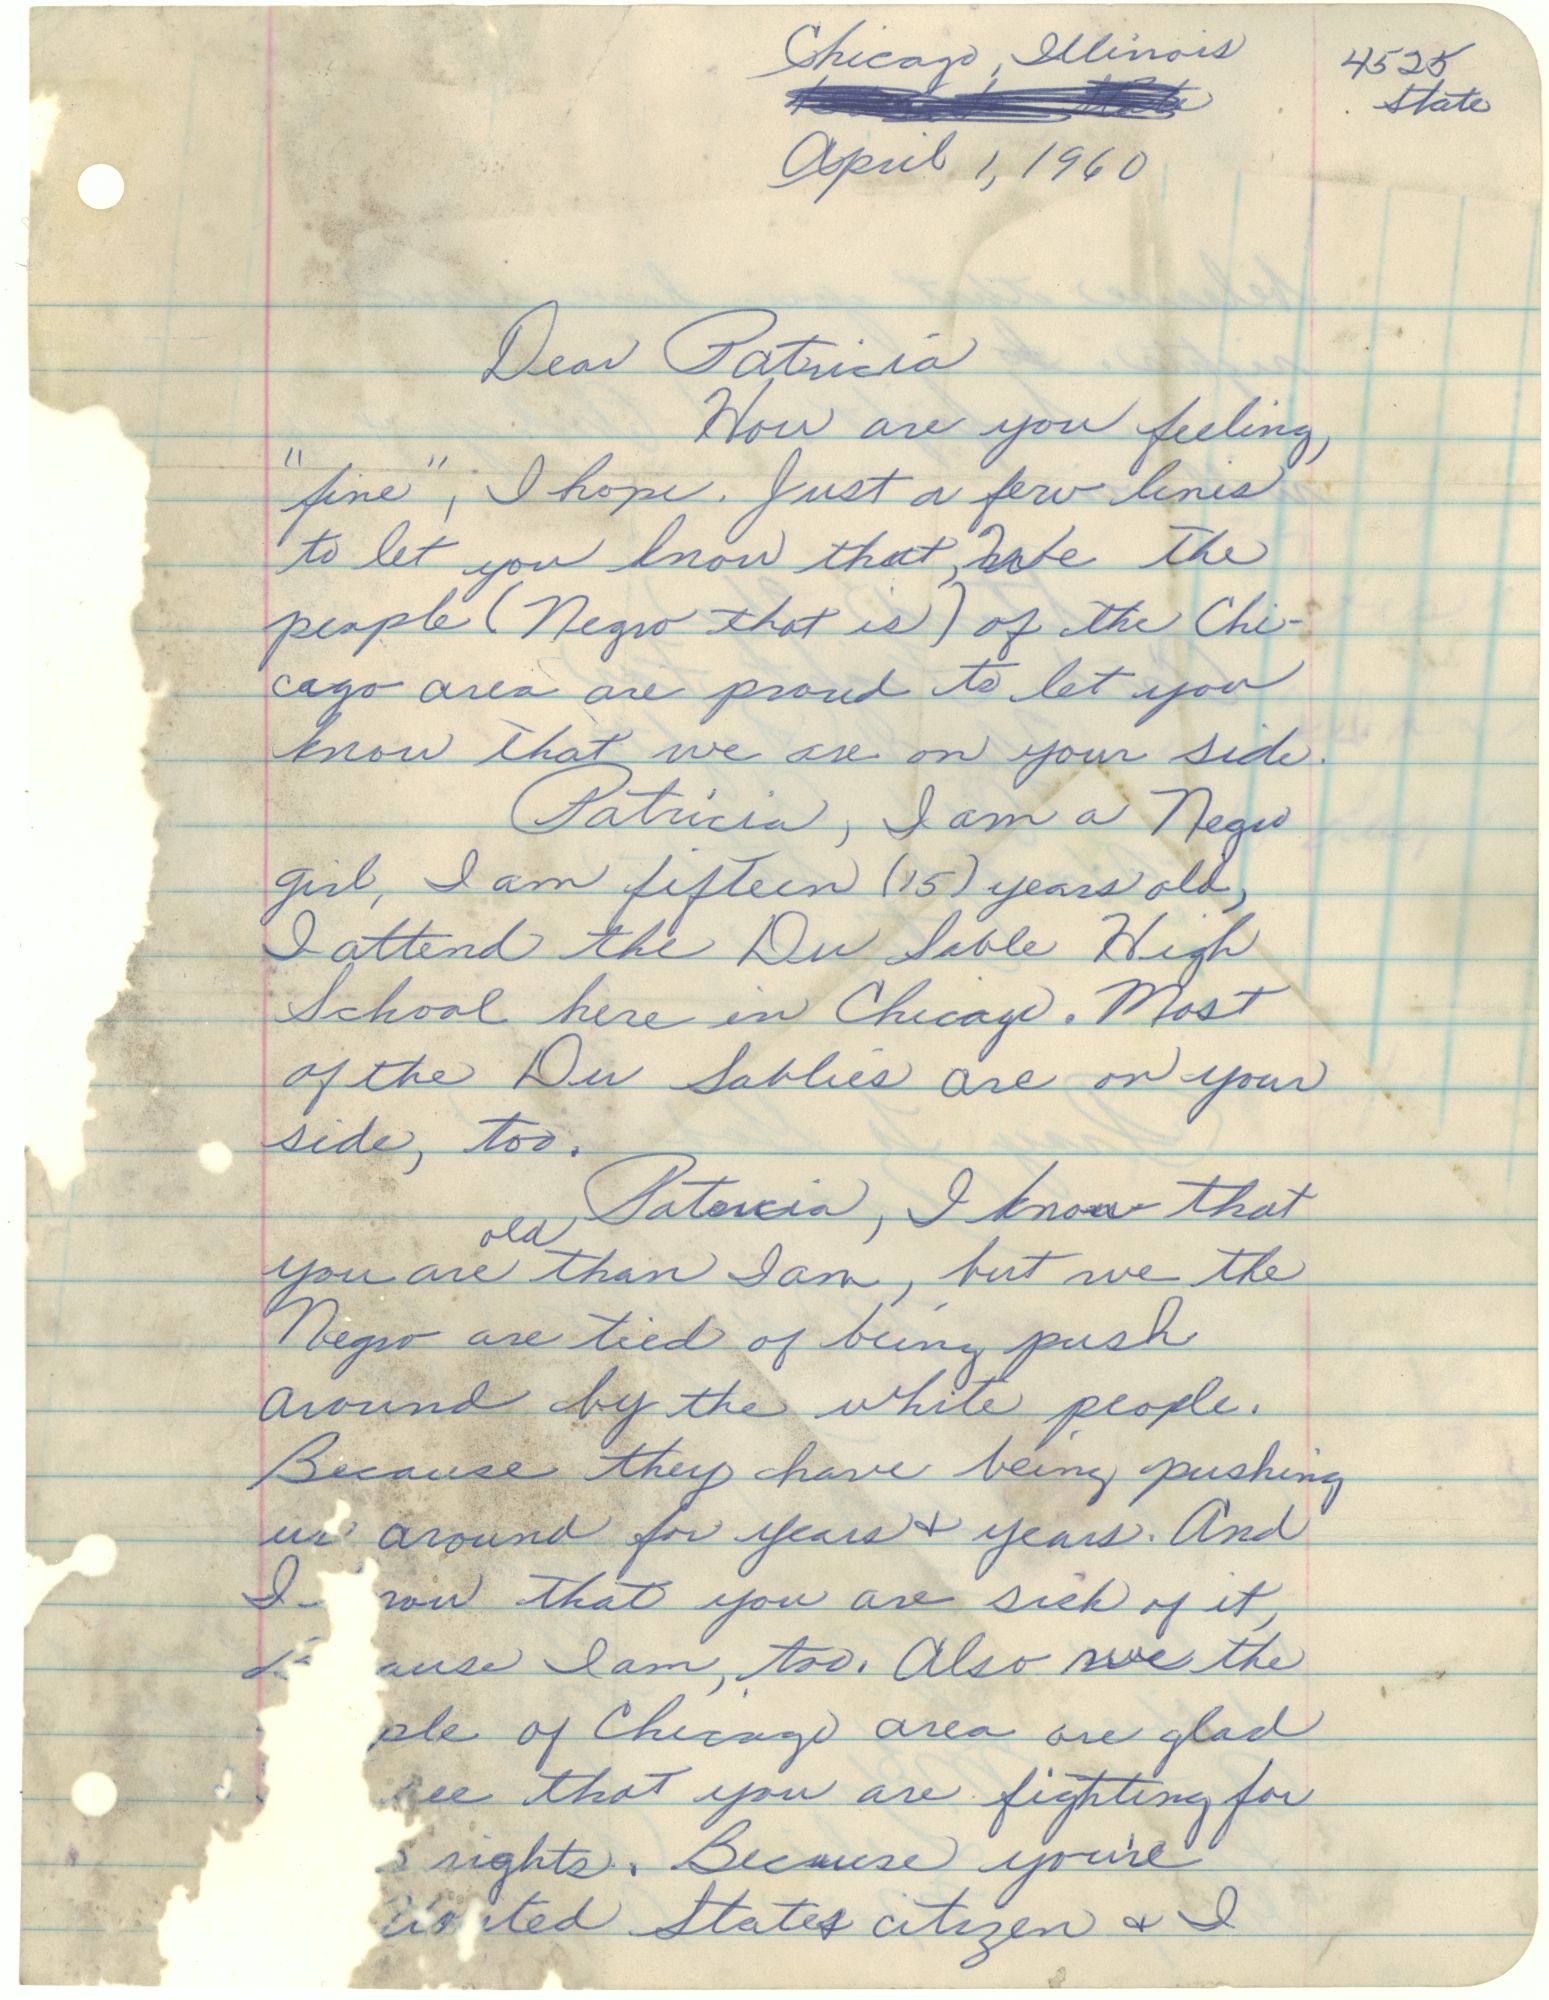 Chicago, Illinois
4525
State
April 1, 1960
Dear Patricia
How are you feeling,
"fine", I hope. Just a few lines
to let you know that, we the
people (Negro that is) of the Chi-
cago area are proud to let you
know that we are on your side.
Patricia, I am a Negro
girl, I am fifteen (15) years old,
I attend the Du Sable High
School here in Chicago. Most
of the Du Sablies are on your
side, too.
Patricia, I know that
old
you are than I am, but we the
Negro are tied of being push
around by the white people.
Because they have being pushing
us around for years & years. And
I now that you are sick of it,
ause I am, too. Also we the
ple of Chicago area are glad
ee that you are fighting for
s rights. Because you're
United States citizen & I